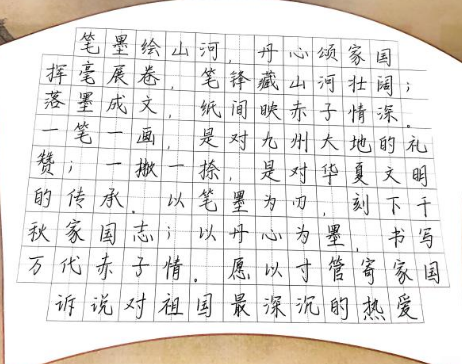 笔墨绘山河，丹心颂家国
挥毫展卷，笔锋藏山河壮阔；
落墨成文，纸间映赤子情深。
一笔一画，是对九州大地的礼
赞；一撇一捺，是对华夏文明
的传承。以笔墨为刃，刻下千
秋家国志；以丹心为墨，书写
万代赤子情。愿以寸管寄家国
诉说对祖国最深沉的热爱